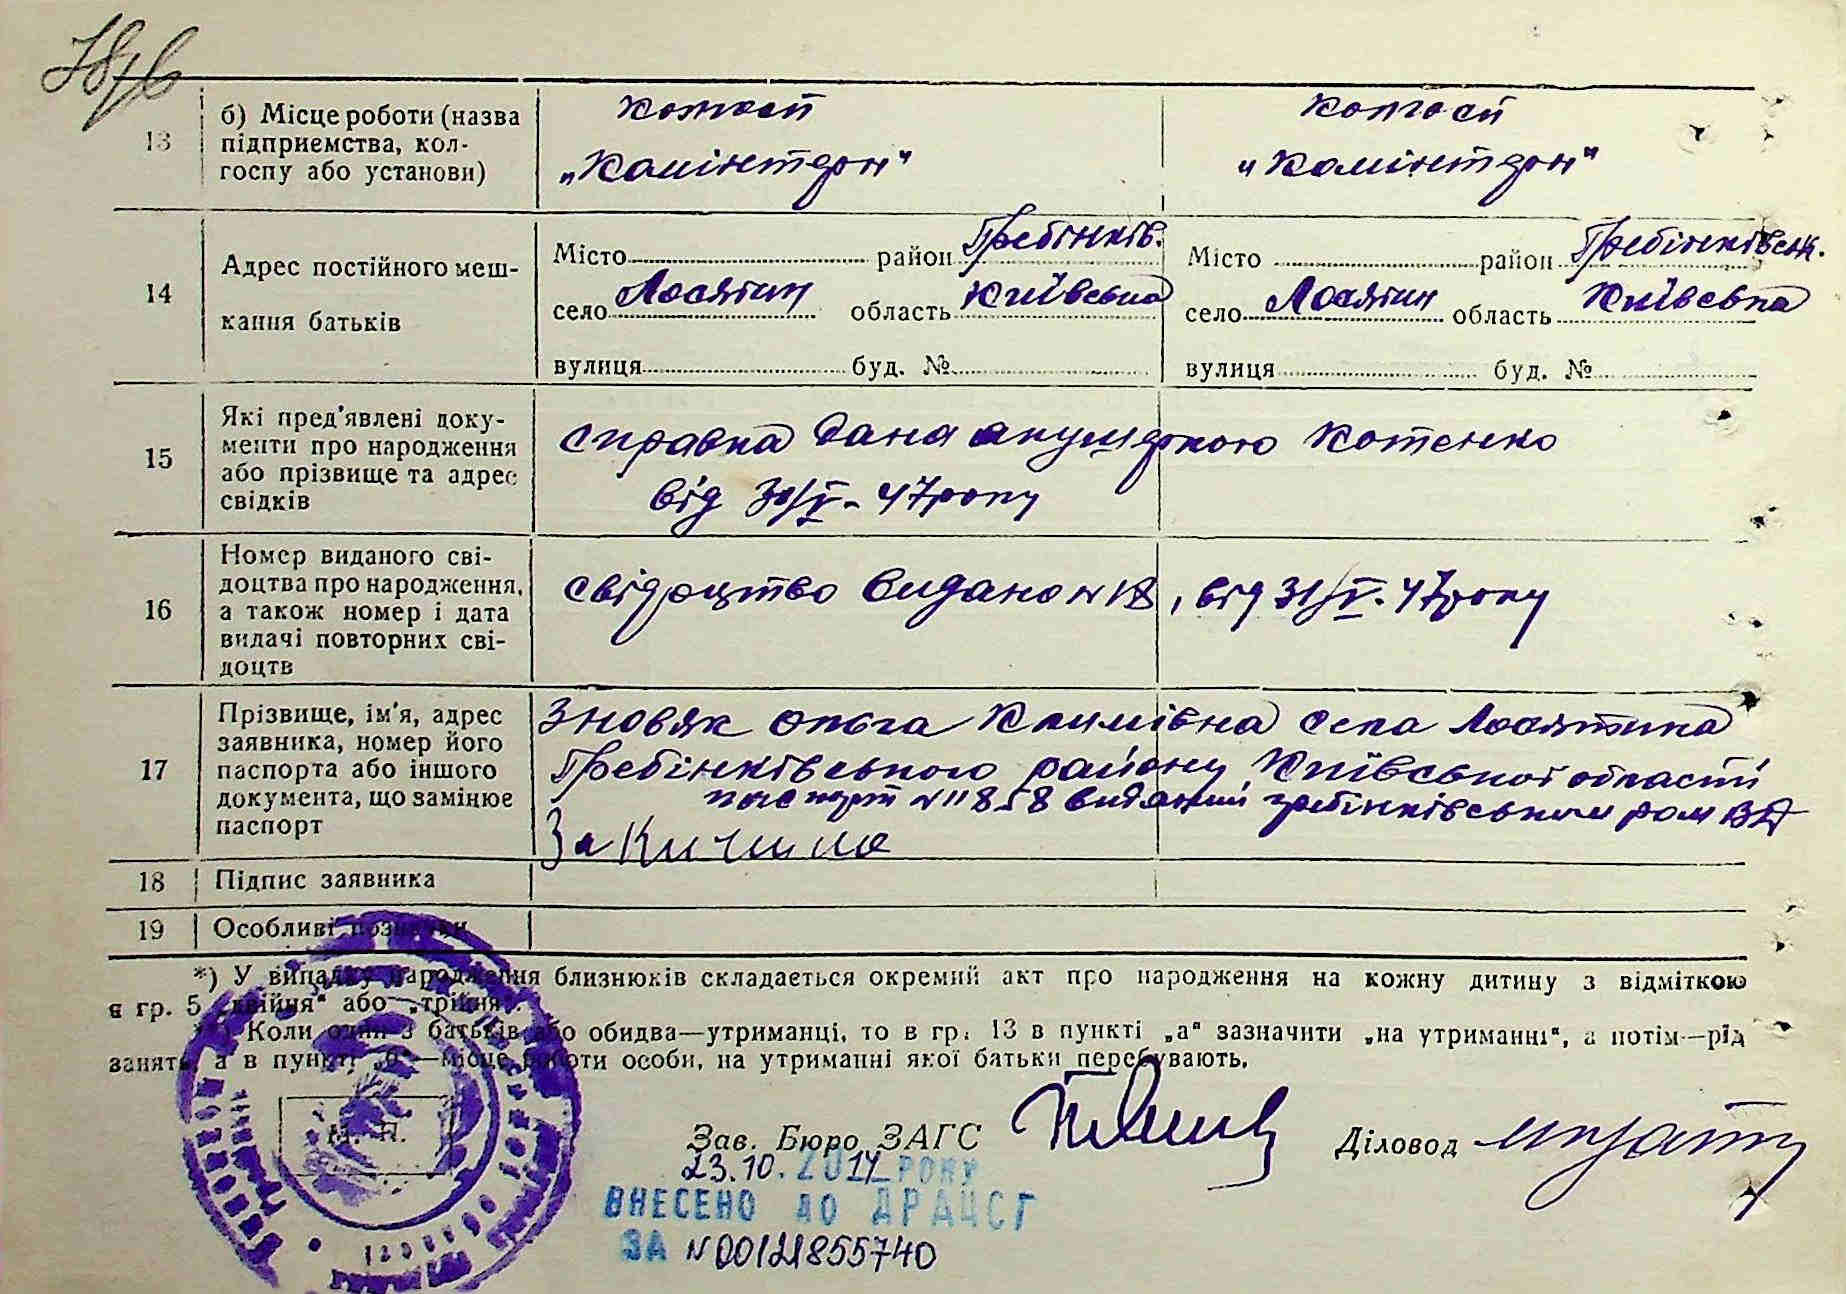 13 б) Місце роботи (назва підприємства, колгоспу або установи)
колгосп „Комінтерн“
колгосп „Комінтерн“
14 Адрес постійного мешкання батьків
Місто район Гребінків.
село Лосятин область Київська
вулиця буд. №
Місто район Гребінківськ.
село Лосятин область Київська
вулиця буд. №
15 Які пред'явлені документи про народження або прізвище та адрес свідків
справка дана акушеркою Котенко
від 30/V- 47 року
16 Номер виданого свідоцтва про народження, а також номер і дата видачі повторних свідоцтв
свідоцтво видано N 18, від 31/V- 47 року
17 Прізвище, ім'я, адрес заявника, номер його паспорта або іншого документа, що замінює паспорт
Зновяк Ольга Климівна села Лосятина
Гребінківського району Київської області
паспорт N 11858 виданий гребінківським ром
18 Підпис заявника
19 Особливі позначки
*) У випадку народження близнюків складається окремий акт про народження на кожну дитину з відміткою
в гр. 5 „двійня“ або „трійня“.
Коли один з батьків або обидва—утриманці, то в гр. 13 в пункті „а“ зазначити „на утриманні“, а потім—рід
занять, а в пункті „б“—місце роботи особи, на утриманні якої батьки перебувають.
М. П.
Зав. Бюро ЗАГС
Діловод
23.10.2017 РОКУ
ВНЕСЕНО ДО ДРАЦСГ
ЗА N 00121855740